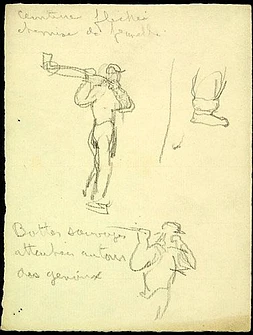 ceinture fléchée
chemise de flanelle
Bottes sauvages
attachées autour
des genoux